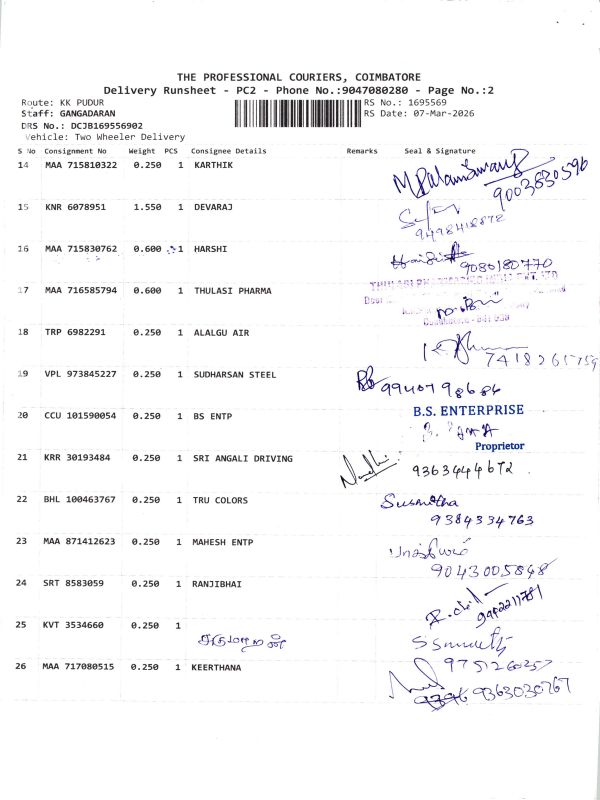 THE PROFESSIONAL COURIERS, COIMBATORE
Delivery Runsheet - PC2 - Phone No.:9047080280 - Page No.:2
Route: KK PUDUR RS No.: 1695569
Staff: GANGADARAN RS Date: 07-Mar-2026
DRS No.: DCJB169556902
Vehicle: Two Wheeler Delivery
S No Consignment No Weight PCS Consignee Details Remarks Seal & Signature
14 MAA 715810322 0.250 1 KARTHIK
9003630596
15 KNR 6078951 1.550 1 DEVARAJ
9498418872
16 MAA 715830762 0.600 1 HARSHI
9080180770
17 MAA 716585794 0.600 1 THULASI PHARMA
18 TRP 6982291 0.250 1 ALALGU AIR
7418261759
19 VPL 973845227 0.250 1 SUDHARSAN STEEL
9940798684
20 CCU 101590054 0.250 1 BS ENTP
B.S. ENTERPRISE
Proprietor
21 KRR 30193484 0.250 1 SRI ANGALI DRIVING
9363444672
22 BHL 100463767 0.250 1 TRU COLORS
Susmitha
9384334763
23 MAA 871412623 0.250 1 MAHESH ENTP
9043005848
24 SRT 8583059 0.250 1 RANJIBHAI
9442211781
25 KVT 3534660 0.250 1
9751260257
26 MAA 717080515 0.250 1 KEERTHANA
9363030767